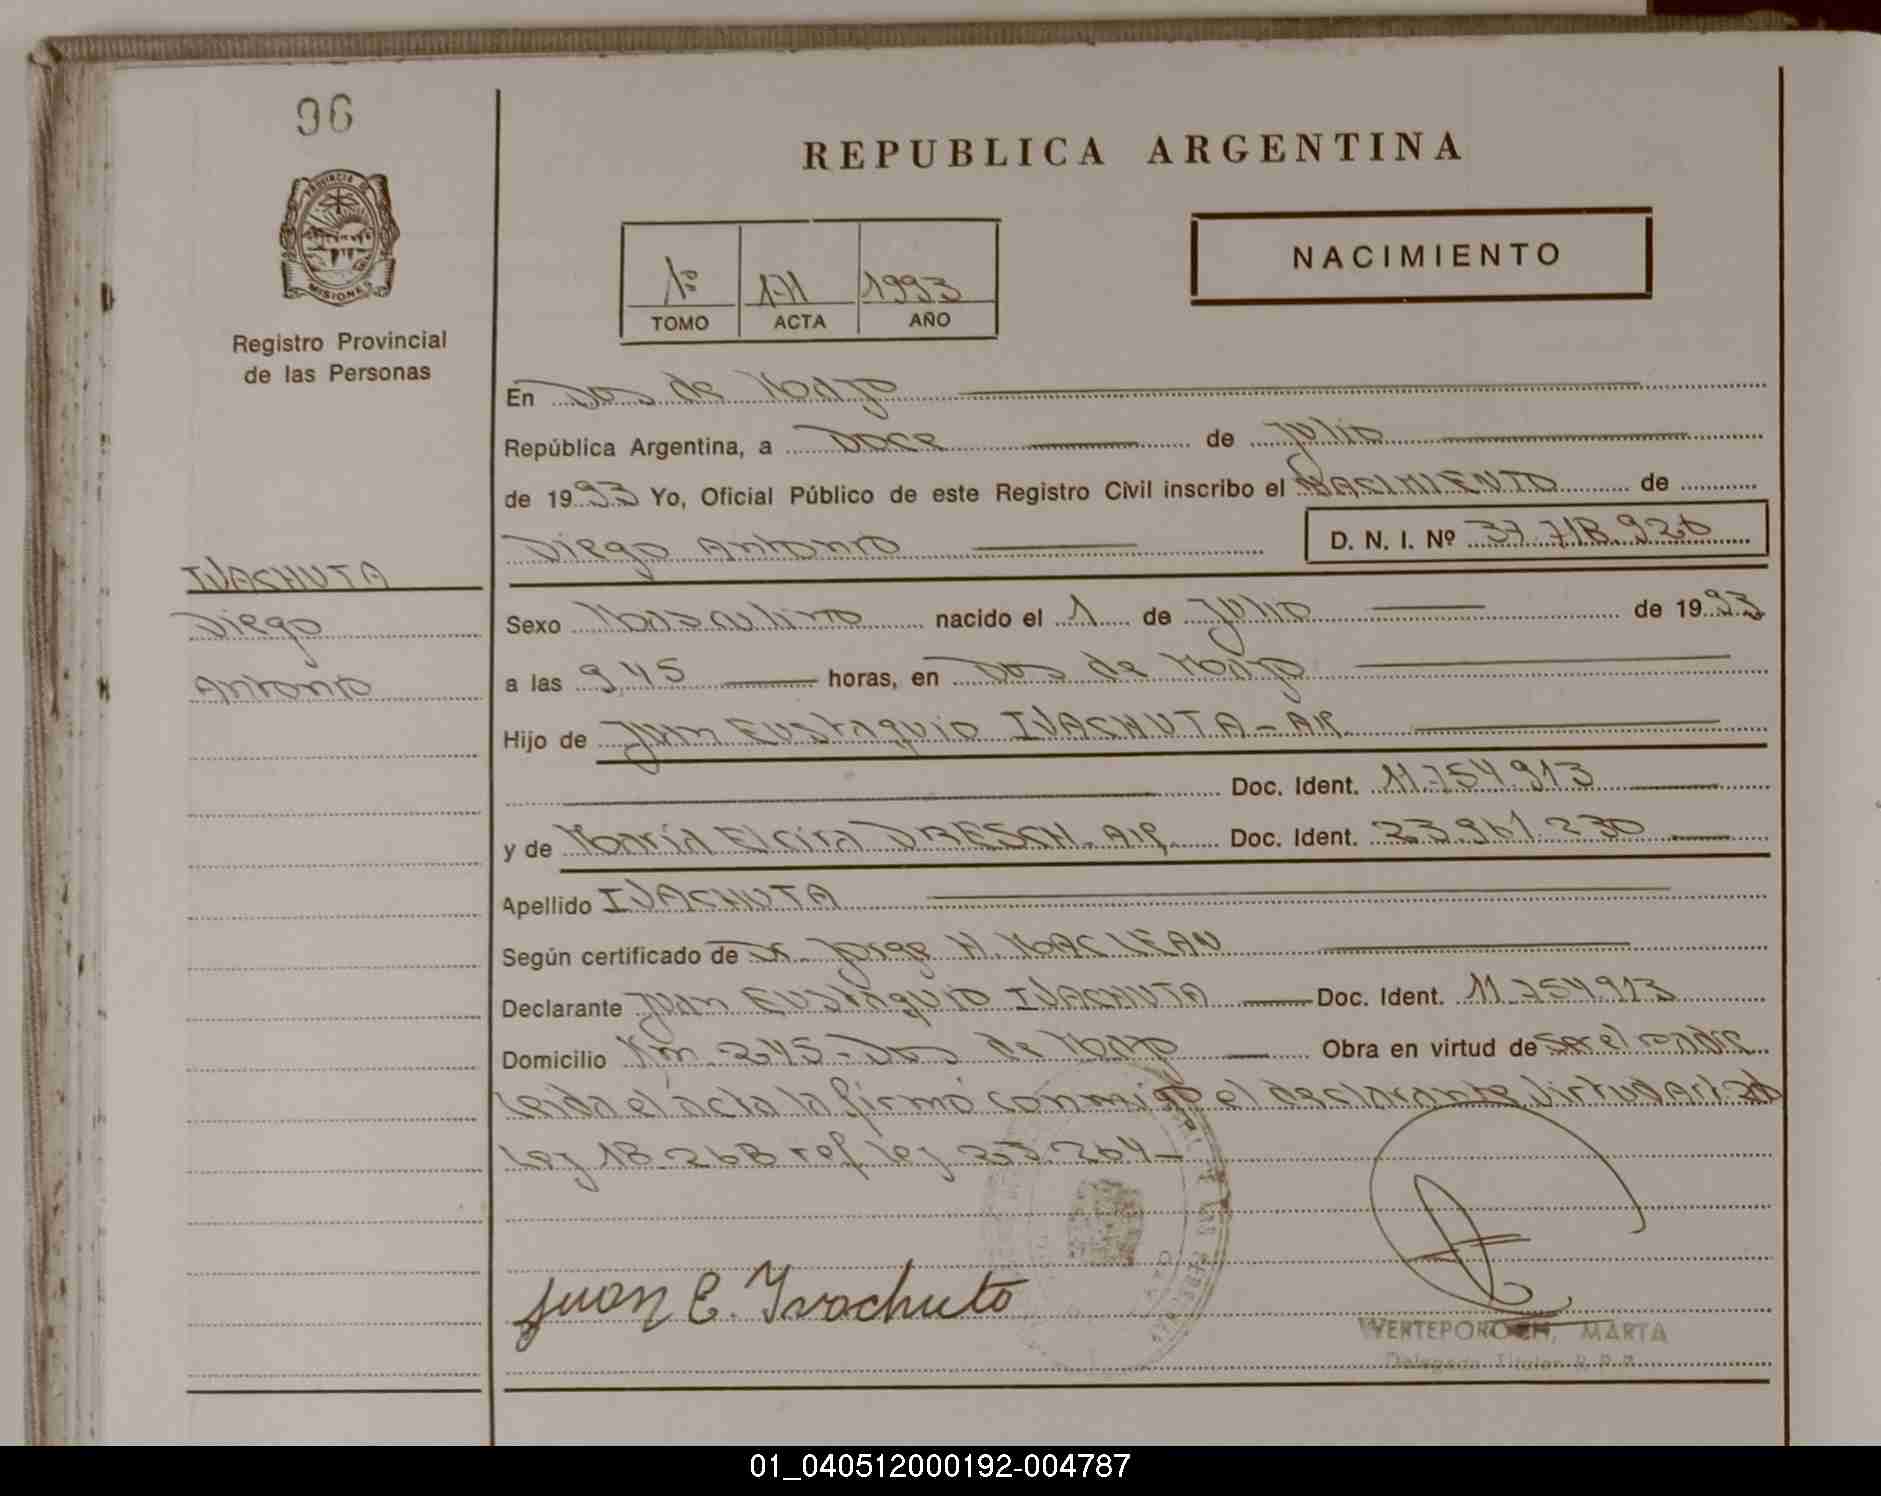 96
PROVINCIA DE
MISIONES
Registro Provincial
de las Personas
REPUBLICA ARGENTINA
NACIMIENTO
1º 171 1993
TOMO ACTA AÑO
En Dos de Mayo
República Argentina, a Doce de Julio
de 1993 Yo, Oficial Público de este Registro Civil inscribo el NACIMIENTO de
Diego Antonio D. N. I. Nº 37.718.920
IVACHUTA
Diego
Antonio
Sexo Masculino nacido el 1 de Julio de 1993
a las 9,45 horas, en Dos de Mayo
Hijo de Juan Eustaquio IVACHUTA - AR.
Doc. Ident. 11.754.913
y de María Elcira DRESCH. AR. Doc. Ident. 23.961.230
Apellido IVACHUTA
Según certificado de Dr. Jorge H. MAC LEAN
Declarante Juan Eustaquio IVACHUTA Doc. Ident. 11.754.913
Domicilio Km. 245 - Dos de Mayo Obra en virtud de Ser el padre
Leida el acta la firmó conmigo el declarante Virtud Art. 20
Ley 18.268 ref Ley 23.264 -
Juan E. Ivachuta
MARTA
Delegada Titular R.P.P.
01_040512000192-004787